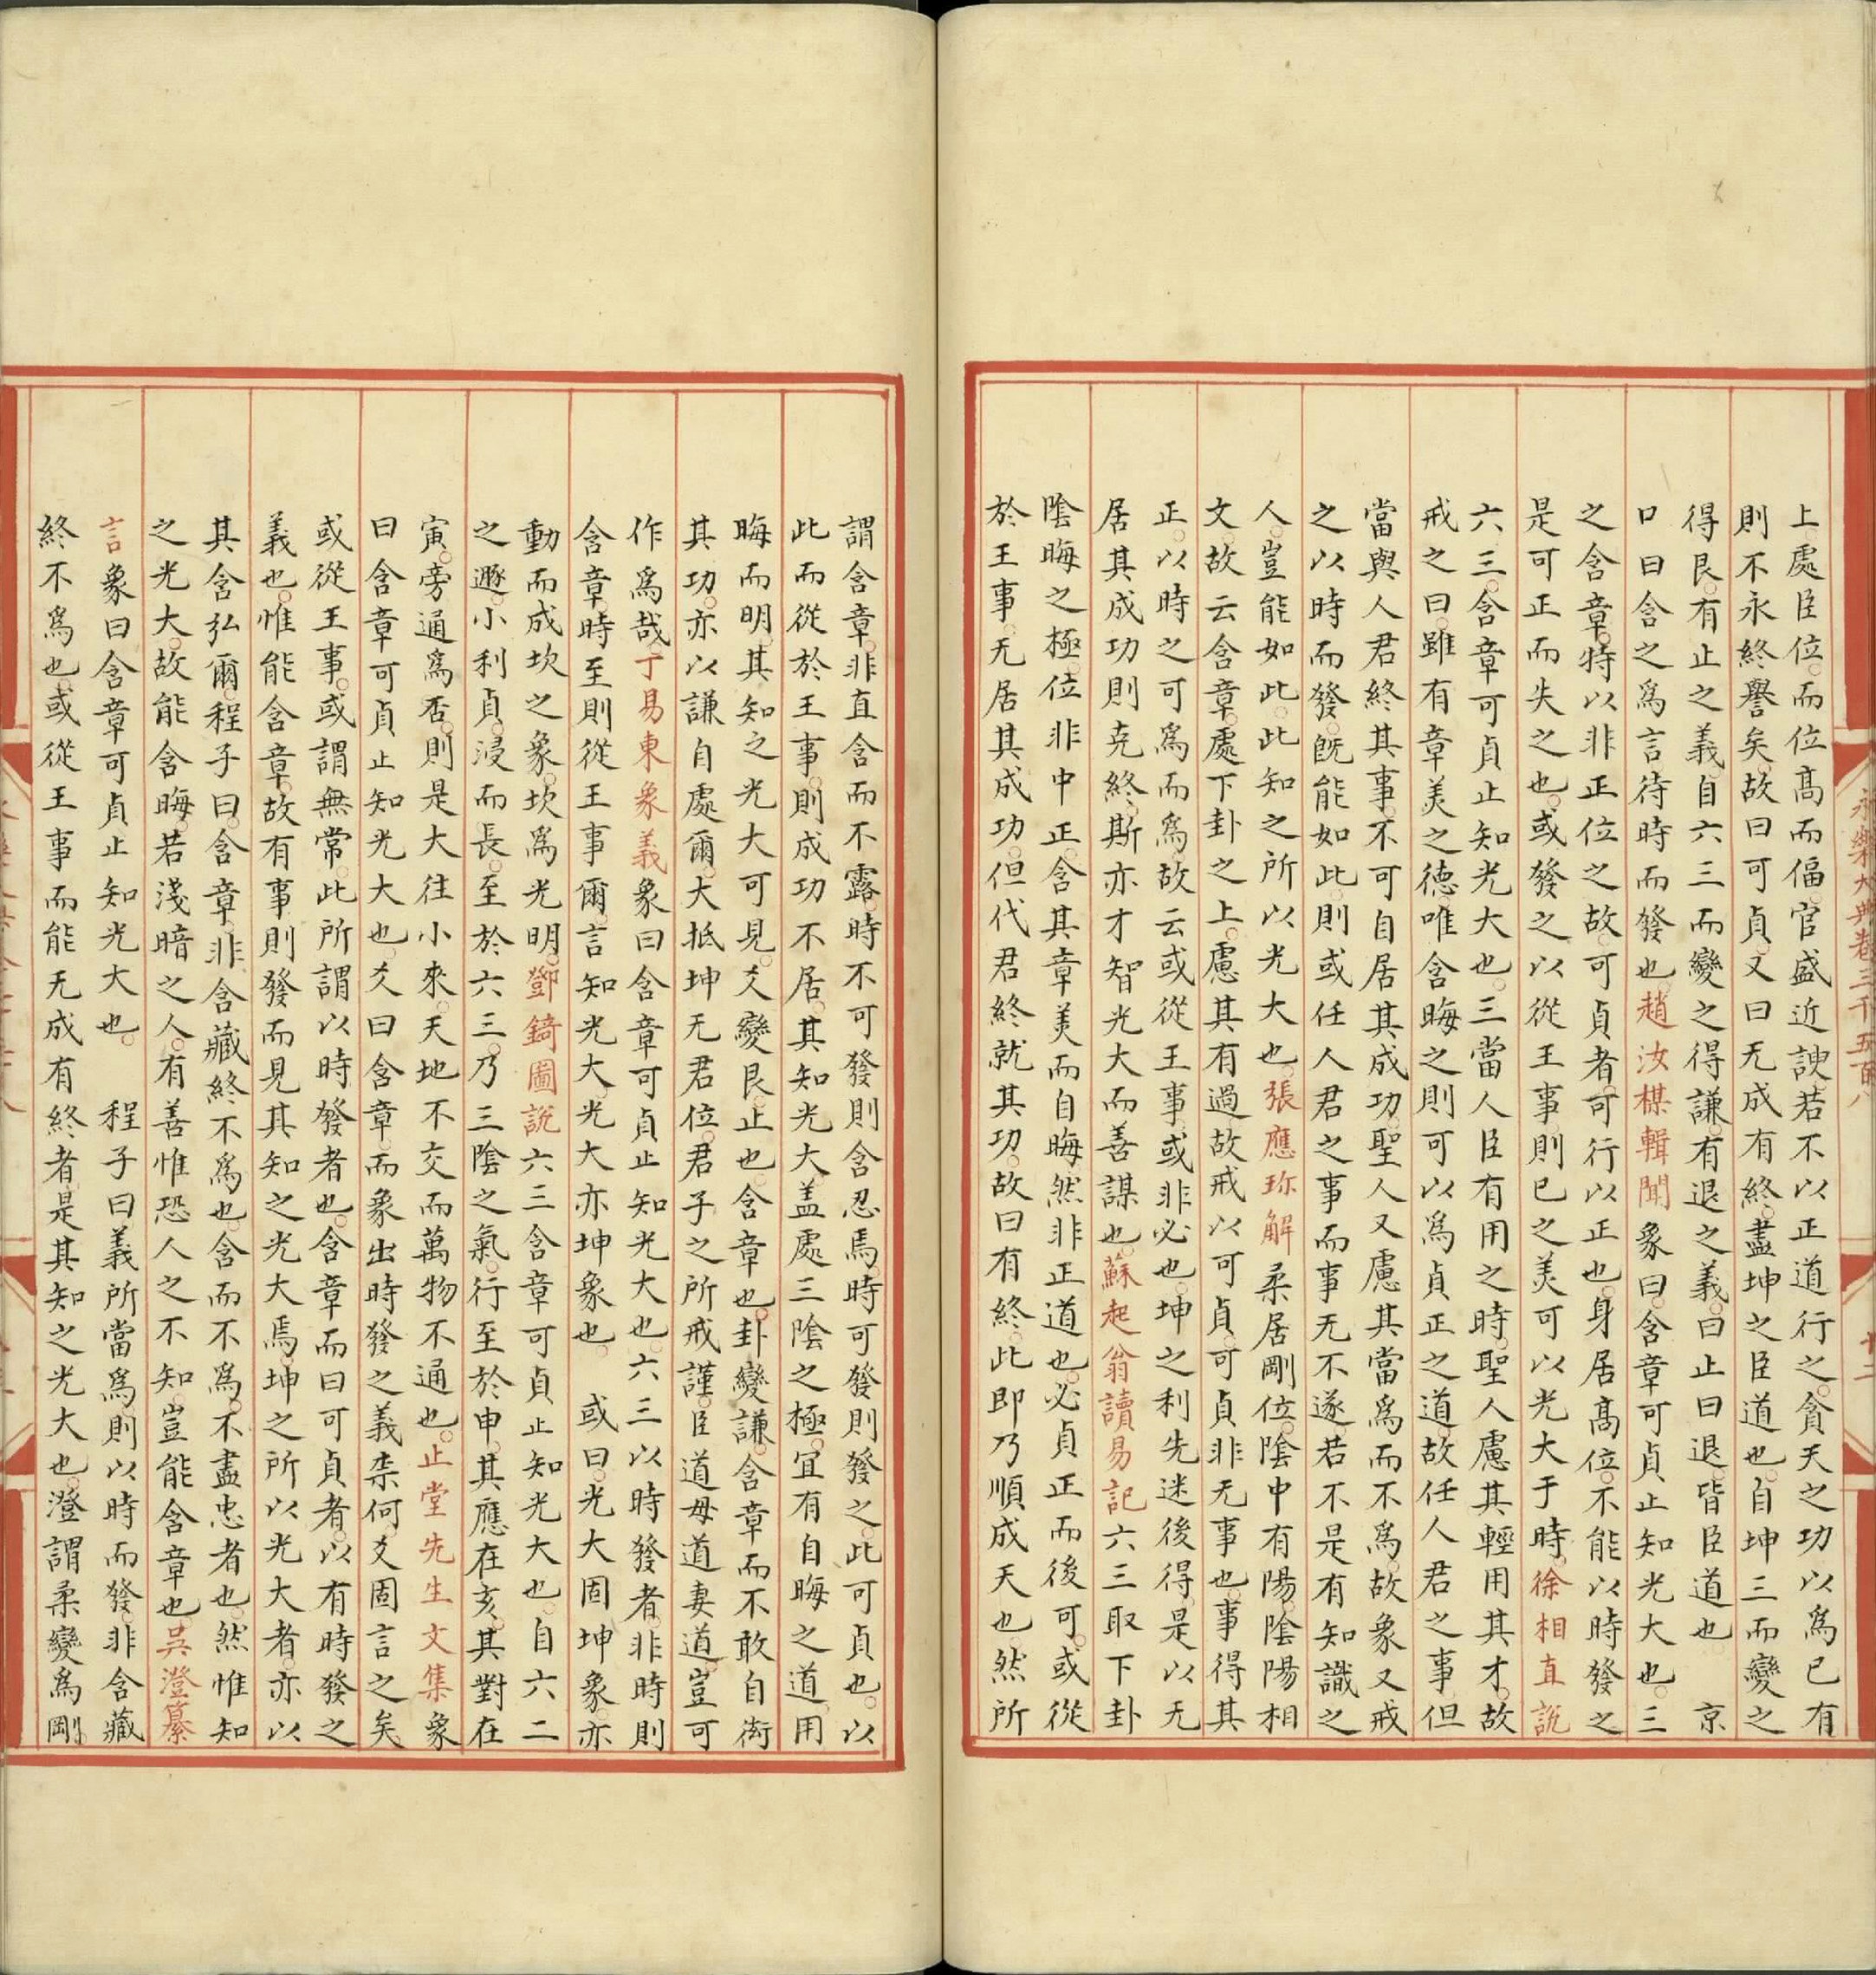 上處臣位而位髙而偪官盛近諛若不以正道行之貪天之功以為已有
則不永終譽矣故曰可貞又曰无成有終盡坤之臣道也自坤三而變之
得艮有止之義自六三而變之得謙有退之義曰止曰退皆臣道也　京
口曰含之爲言待時而發也趙汝楳輯聞象曰含章可貞止知光大也三
之含章特以非正位之故可貞者可行以正也身居髙位不能以時發之
是可正而失之也或發之以從王事則已之美可以光大于時徐相直說
六三含章可貞止知光大也三當人臣有用之時聖人慮其輕用其才故
戒之曰雖有章美之徳唯含晦之則可以爲貞正之道故任人君之事但
當與人君終其事不可自居其成功聖人又慮其當爲而不爲故象又戒
之以時而發旣能如此則或任人君之事而事无不遂若不是有知識之
人豈能如此此知之所以光大也張應珎解柔居剛位陰中有陽陰陽相
文故云含章處下卦之上慮其有過故戒以可貞可貞非无事也事得其
正以時之可爲而爲故云或從王事或非必也坤之利先迷後得是以无
居其成功則克終斯亦才智光大而善謀也蘇起翁讀易記六三取下卦
陰晦之極位非中正含其章美而自晦然非正道也必貞正而後可或從
於王事无居其成功但代君終就其功故曰有終此即乃順成天也然所
謂含章非直含而不露時不可發則含忍焉時可發則發之此可貞也以
此而從於王事則成功不居其知光大盖處三陰之極宜有自晦之道用
晦而明其知之光大可見爻變艮止也含章也卦變謙含章而不敢自衒
其功亦以謙自處爾大抵坤无君位君子之所戒謹臣道母道妻道豈可
作爲哉丁易東象義象曰含章可貞止知光大也六三以時發者非時則
含章時至則從王事爾言知光大光大亦坤象也　或曰光大固坤象亦
動而成坎之象坎爲光明鄧錡圖說六三含章可貞止知光大也自六二
之遯小利貞浸而長至於六三乃三陰之氣行至於申其應在亥其對在
寅旁通爲否則是大往小來天地不交而萬物不通也止堂先生文集象
曰含章可貞止知光大也爻曰含章而象出時發之義柰何爻固言之矣
或從王事或謂無常此所謂以時發者也含章而曰可貞者以有時發之
義也惟能含章故有事則發而見其知之光大焉坤之所以光大者亦以
其含弘爾程子曰含章非含藏終不爲也含而不爲不盡忠者也然惟知
之光大故能含晦若淺暗之人有善惟恐人之不知豈能含章也吳澄纂
言象曰含章可貞止知光大也　程子曰義所當爲則以時而發非含藏
終不爲也或從王事而能无成有終者是其知之光大也澄謂柔變爲剛